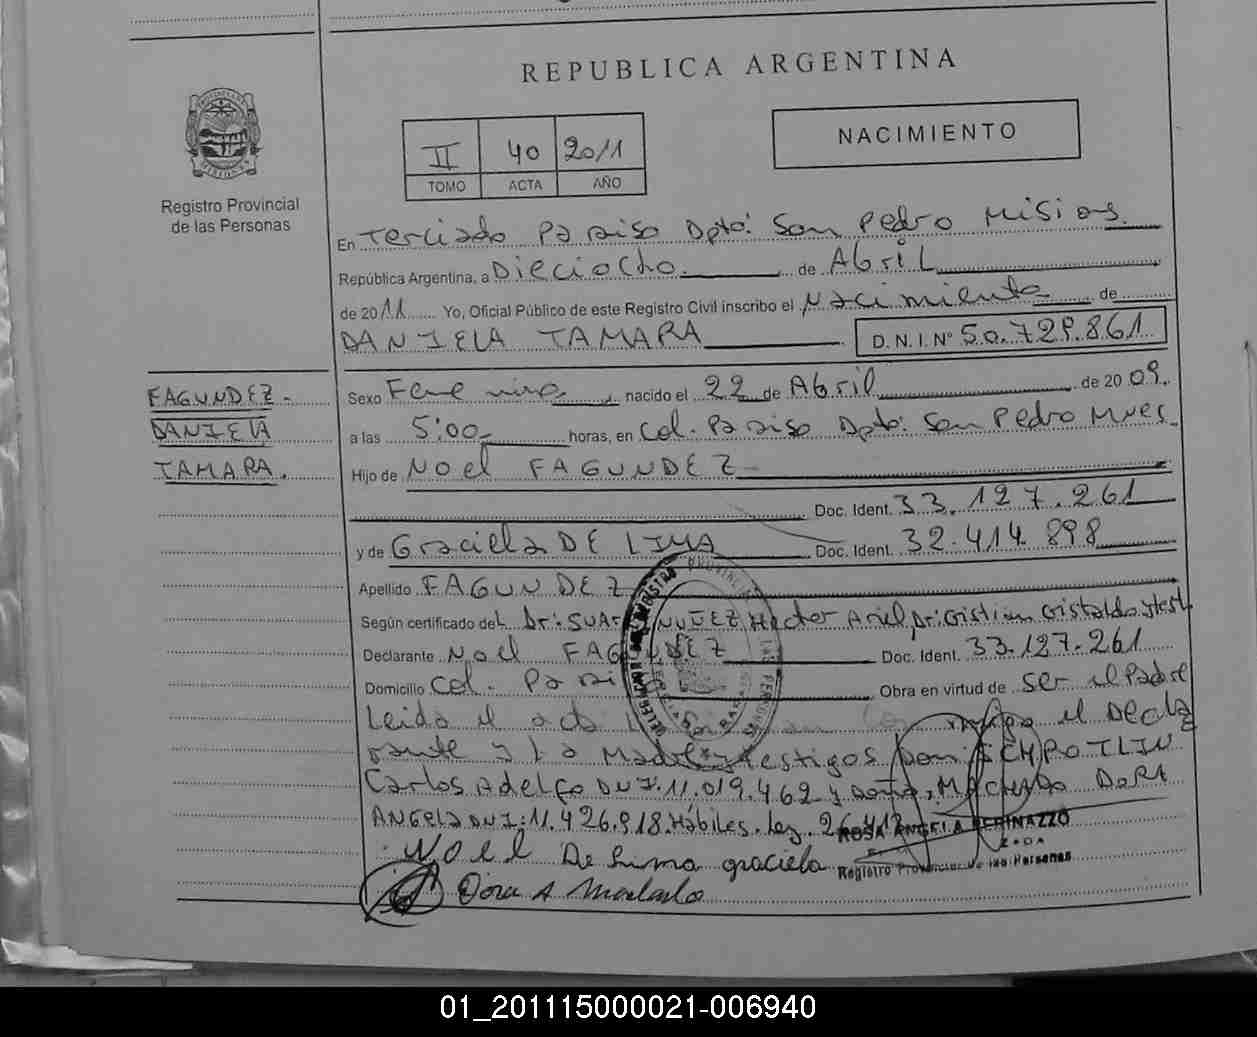 REPUBLICA ARGENTINA
II 40 2011
TOMO ACTA AÑO
NACIMIENTO
Registro Provincial
de las Personas
En Terciado Paraiso Dpto: San Pedro Misiones
República Argentina, a Dieciocho de Abril
de 2011 Yo, Oficial Público de este Registro Civil inscribo el Nacimiento de
DANIELA TAMARA D.N.I. Nº 50.729.861
FAGUNDEZ
DANIELA
TAMARA.
Sexo Femenino nacido el 22 de Abril de 2009.
a las 5:00 horas, en Col. Paraiso Dpto: San Pedro Mnes
Hijo de Noel FAGUNDEZ
Doc. Ident. 33.127.261
y de Graciela DE LIMA Doc. Ident. 32.414.898
Apellido FAGUNDEZ
Según certificado del Dr: NUÑEZ Hector Ariel, Dr: Cristian Cristaldo y test
Declarante Noel FAGUNDEZ Doc. Ident. 33.127.261
Domicilio Col. Obra en virtud de ser el Padre
Leido el acta el Decla
rante y la Madre y testigos
Carlos Adelfo DNI. 11.019.462 y Doña, DORA
ANGELA DNI: 11.426.918. Hábiles. Ley. 26.413
ROSA ANGELA
Registro Provincial de las Personas
Noel De Lima graciela
Dora A Machado
01_201115000021-006940